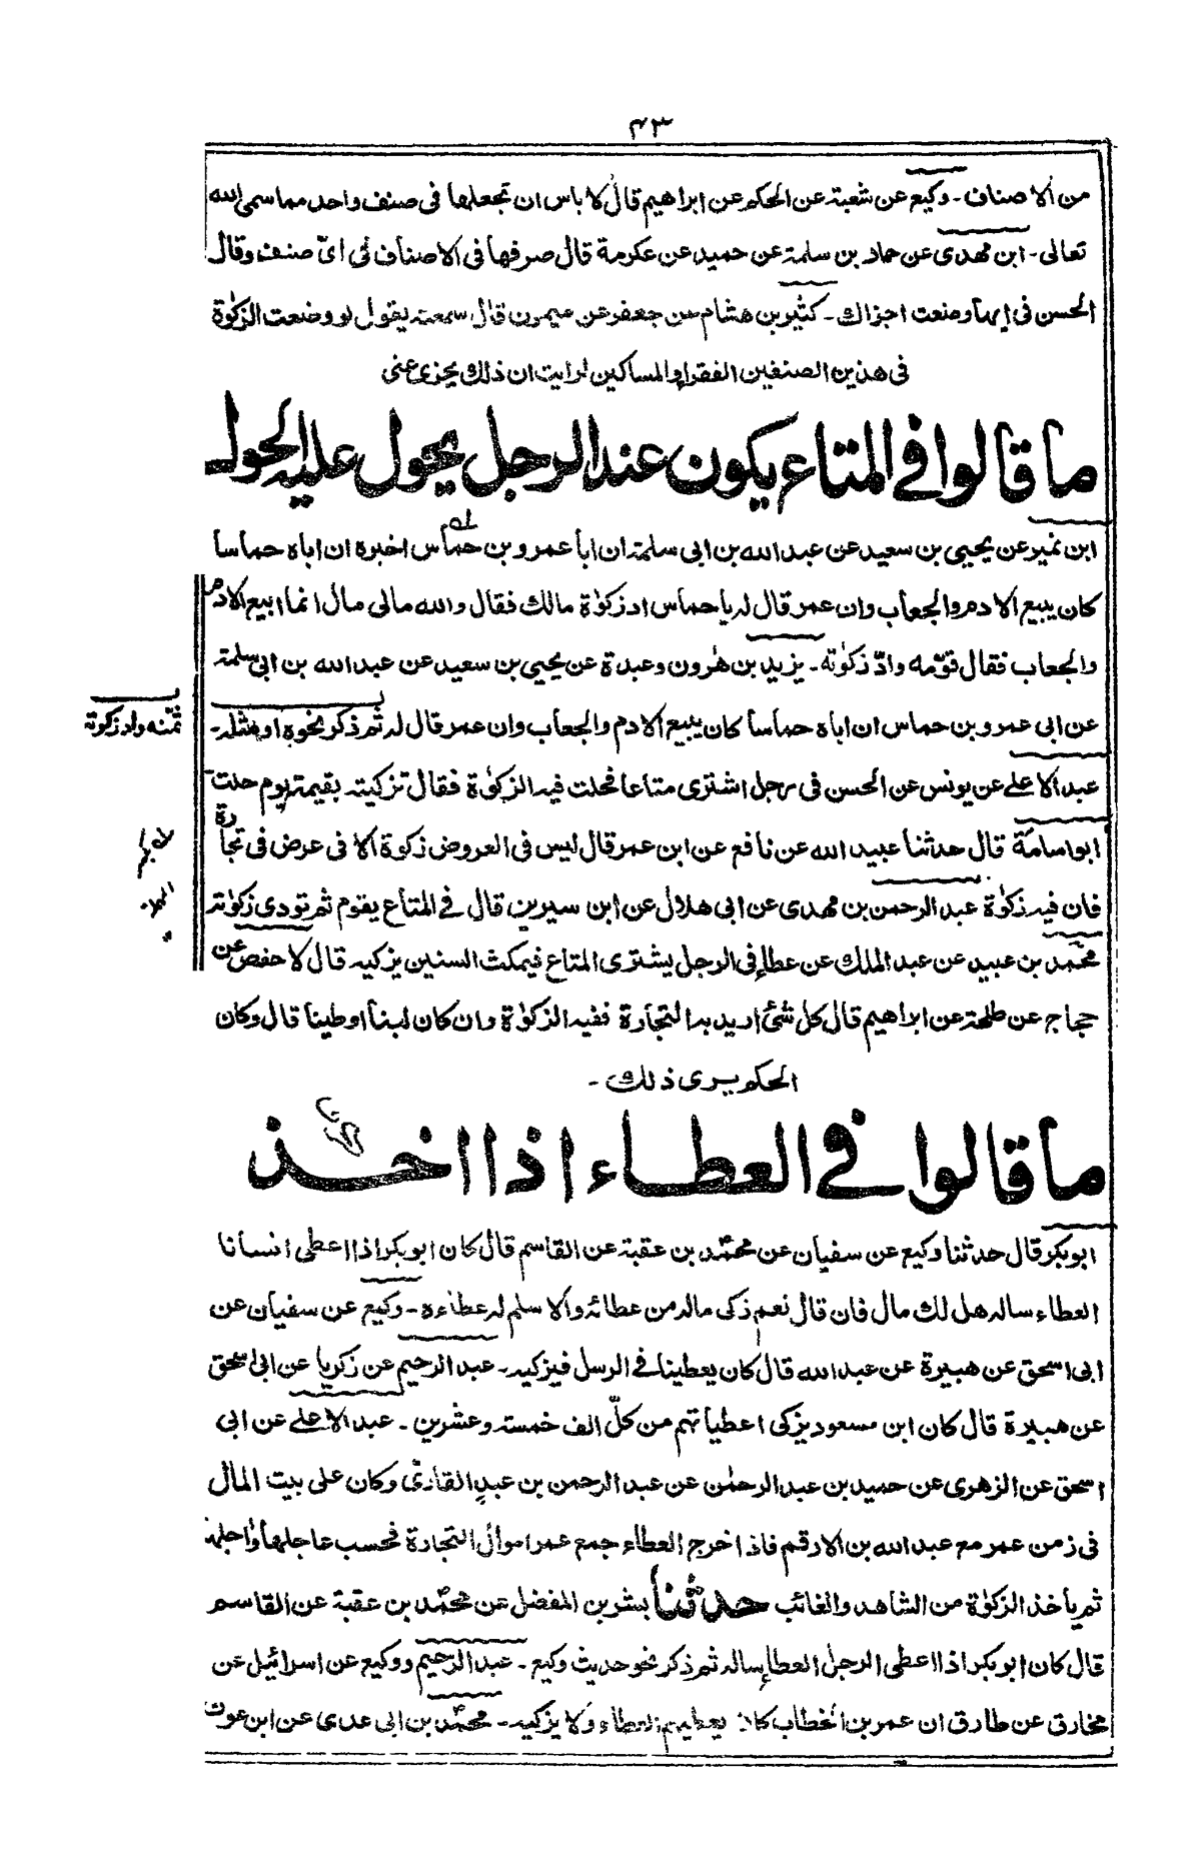 ۴۳
من الاصناف۔ وكيع عن شعبة عن الحكم عن ابراهيم قال لا باس ان تجعلها فى صنف واحد مما سمى الله
تعالى۔ ابن مهدى عن حماد بن سلمة عن حميد عن عكرمة قال صرفها فى الاصناف فى اىّ صنف وقال
الحسن فى ايها وضعت اجزاك۔ كثير بن هشام عن جعفر عن ميمون قال سمعته يقول لو وضعت الزكوٰة
فى هذين الصنفين الفقراء والمساكين لرايت ان ذلك يجزى عنى
ما قالوا فى المتاع يكون عند الرجل يحول عليه الحول
ابن نمير عن يحيى بن سعيد عن عبد الله بن ابى سلمة ان ابا عمرو بن حماس اخبره ان اباه حماسا
كان يبيع الادم والجعاب وان عمر قال له يا حماس اد زكوٰة مالك فقال والله مالى مال انما ابيع الادم
والجعاب فقال قوّمه وادّ زكوٰته۔ يزيد بن هٰرون وعبدة عن يحيى بن سعيد عن عبد الله بن ابى سلمة
عن ابى عمرو بن حماس ان اباه حماسا كان يبيع الادم والجعاب وان عمر قال له ثم ذكر نحوه او مثله۔
ثمّنه واد زكوته
عبد الاعلے عن يونس عن الحسن فى رجل اشترى متاعا فحلت فيه الزكوٰة فقال تزكيته بقيمته يوم حلت
ابواسامة قال حدثنا عبيد الله عن نافع عن ابن عمر قال ليس فى العروض زكوة الا فى عرض فى تجارة
فان فيه زكوٰة عبد الرحمن بن مهدى عن ابى هلال عن ابن سيرين قال فى المتاع يقوم ثم تودى زكوٰته
محمّد بن عبيد عن عبد الملك عن عطاء فى الرجل يشترى المتاع فيمكث السنين يزكيه قال لا حفص عن
حجاج عن طلحة عن ابراهيم قال كل شئ اريد به التجارة ففيه الزكوٰة وان كان لبنا او طينا قال وكان
الحكم يرى ذلك۔
ما قالوا فى العطاء اذا اخذ
ابو بكر قال حدثنا وكيع عن سفيان عن محمّد بن عقبة عن القاسم قال كان ابو بكر اذا اعطى انسانا
العطاء ساله هل لك مال فان قال نعم زكى ماله من عطائه والا سلم له عطاءه۔ وكيع عن سفيان عن
ابى اسحق عن هبيرة عن عبد الله قال كان يعطينا فى الرسل فيزكيه۔ عبد الرحيم عن زكريا عن ابى اسحق
عن هبيرة قال كان ابن مسعود يزكى اعطياتهم من كلّ الف خمسة وعشرين۔ عبد الاعلے عن ابى
اسحق عن الزهرى عن حميد بن عبد الرحمٰن عن عبد الرحمن بن عبدٍ القارىّ وكان على بيت المال
فى زمن عمر مع عبد الله بن الارقم فاذا خرج العطاء جمع عمر اموال التجارة فحسب عاجلها وآجلها
ثم ياخذ الزكوٰة من الشاهد والغائب حدثنا بشر بن المفضل عن محمّد بن عقبة عن القاسم
قال كان ابو بكر اذا اعطى الرجل العطاء ساله ثم ذكر نحو حديث وكيع۔ عبد الرحيم ووكيع عن اسرائيل عن
مخارق عن طارق ان عمر بن الخطاب كان يعطيهم العطاء ولا يزكيه۔ محمّد بن ابى عدى عن ابن عون